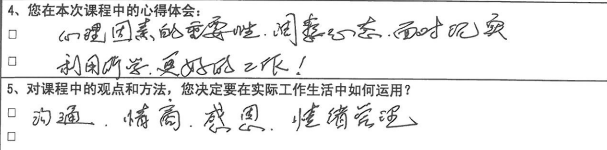 4、您在本次课程中的心得体会：
□ 心理因素的重要性.调整心态.面对现实
□ 利用所学.更好的工作！
5、对课程中的观点和方法，您决定要在实际工作生活中如何运用？
□ 沟通.情商.感恩.情绪管理
□